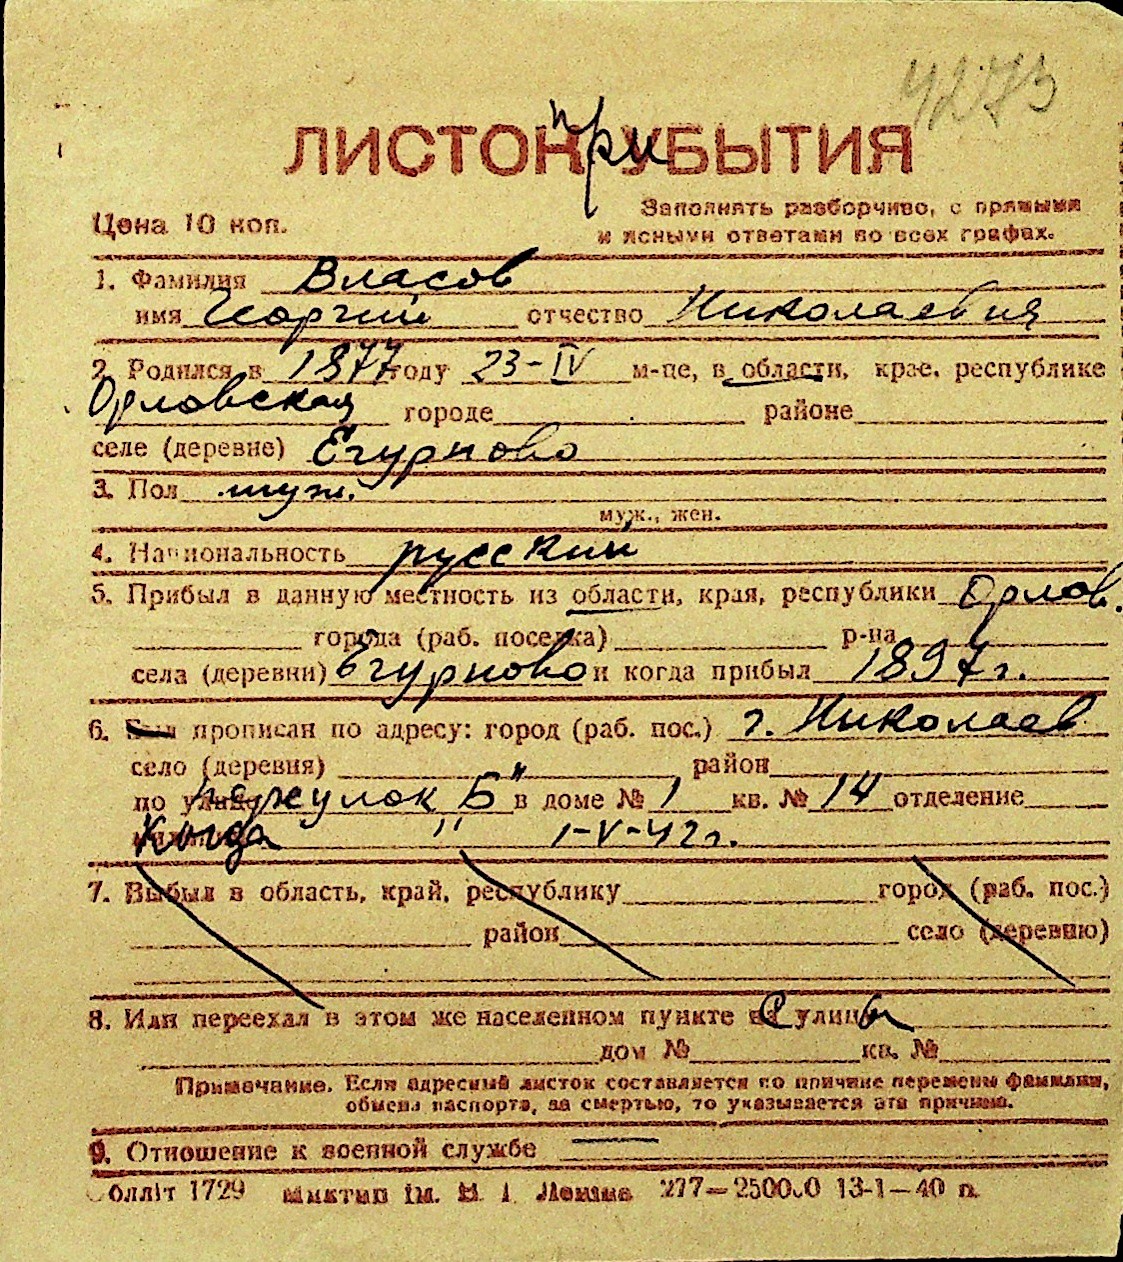 4273
ЛИСТОК при УБЫТИЯ
Цена 10 коп.
Заполнять разборчиво, с прямыми
и ясными ответами во всех графах.
1. Фамилия Власов
имя Георгий отчество Николаевич
2. Родился в 1877 году 23-IV м-це, в области, крае, республике
Орловская городе районе
селе (деревне) Егурново
3. Пол муж.
муж., жен.
4. Национальность русский
5. Прибыл в данную местность из области, края, республики Орлов.
города (раб. поселка) р-на
села (деревни) Егурново и когда прибыл 1897 г.
6. Был прописан по адресу: город (раб. пос.) г. Николаев
село (деревня) район
по улице переулок "Б" в доме № 1 кв. № 14 отделение
Когда " 1-V-42 г.
7. Выбыл в область, край, республику город (раб. пос.)
район село (деревню)
8. Или переехал в этом же населенном пункте с улицы
дом № кв. №
Примечание. Если адресный листок составляется по причине перемены фамилии,
обмена паспорта, за смертью, то указывается эта причина.
9. Отношение к военной службе —
Облліт 1729 ім. В. І. Леніна 277—250000 13-1—40 п.